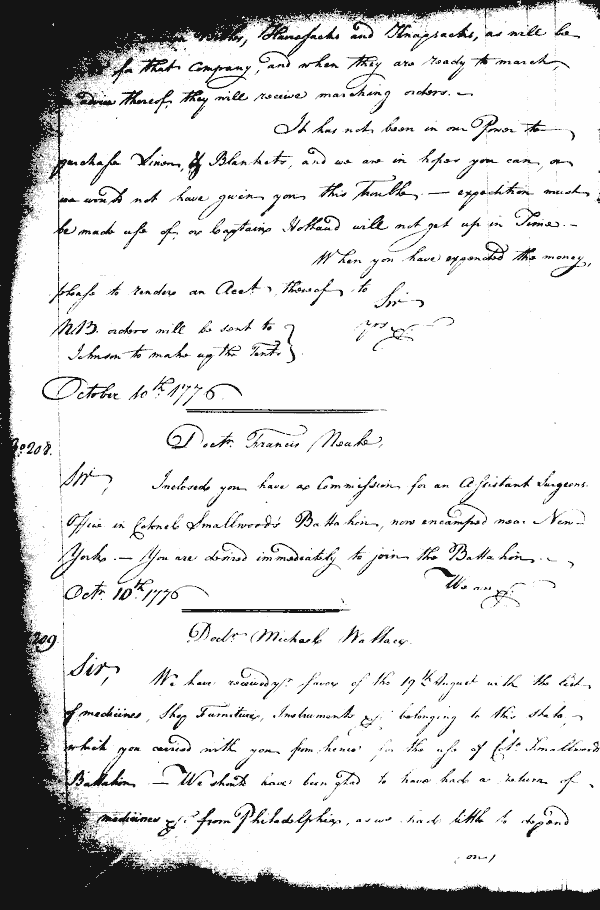 Haversacks and Knapsacks, as will be
for that Company, and when they are ready to march,
advice thereof they will receive marching orders.—
It has not been in our Power to
purchase Linen, or Blankets, and we are in hopes you can, or
we would not have given you this Trouble — expedition must
be made use of, or Captain Holland will not get up in Time.—
When you have expended the money,
please to render an Acct. thereof to
Sir
NB. orders will be sent to yrs &c.
Johnson to make up the Tents
October 10th 1776
No. 208. Doctr. Francis Neale,
Sir, Inclosed you have a Commission for an Assistant Surgeons
Office in Colonel Smallwood's Battalion, now encamped near New
York.— You are desired immediately to join the Battalion.—
Octr. 10th 1776 We are &c.
209 Doctr. Michael Wallace.
Sir, We have received yr. favor of the 19th August with the list
of medicines, Shop Furniture, Instruments &c. belonging to this State,
which you carried with you from hence for the use of Colo. Smallwoods
Battalion — We should have been glad to have had a return of
medicines &c. from Philadelphia, as we had little to depend
(on)